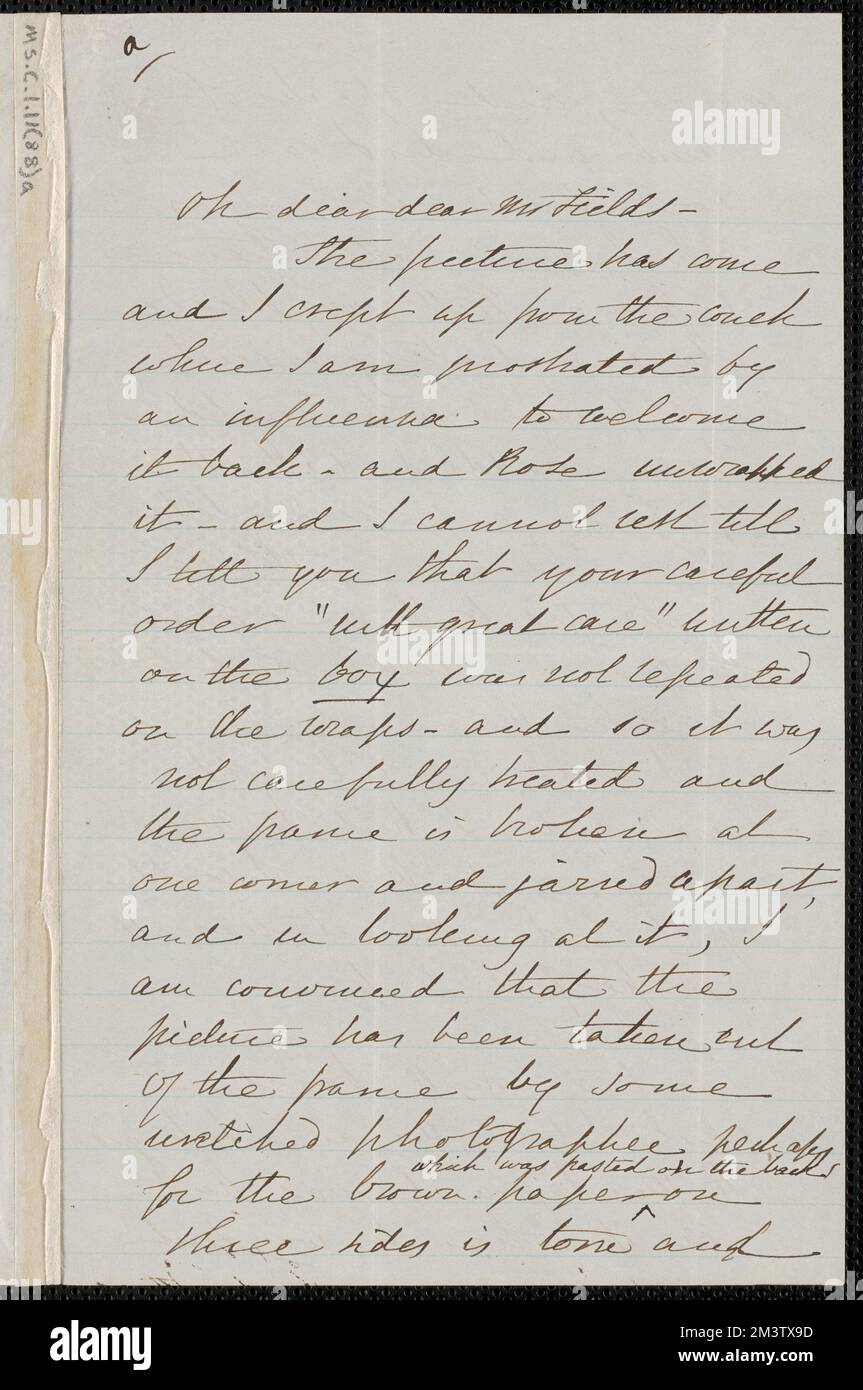 a/
Ms.C.1.11(88)a
Oh dear dear Mr Fields -
The picture has come
and I crept up from the couch
where I am prostrated by
an influenza to welcome
it back - and Rose unwrapped
it - and I cannot rest till
I tell you that your careful
order "with great care" written
on the box was not repeated
on the wraps - and so it was
not carefully treated and
the frame is broken at
one corner and jarred apart,
and in looking at it, I
am convinced that the
picture has been taken out
of the frame by some
wretched photographer perhaps
which was pasted on the back
for the brown paper ^ on
three sides is torn and
alamy
Image ID: 2M3TX9D
www.alamy.com